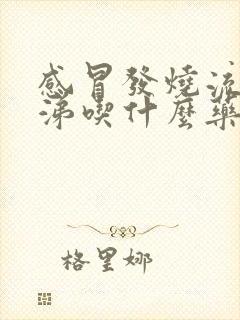 感冒發燒流
涕喫什麼藥
格里娜